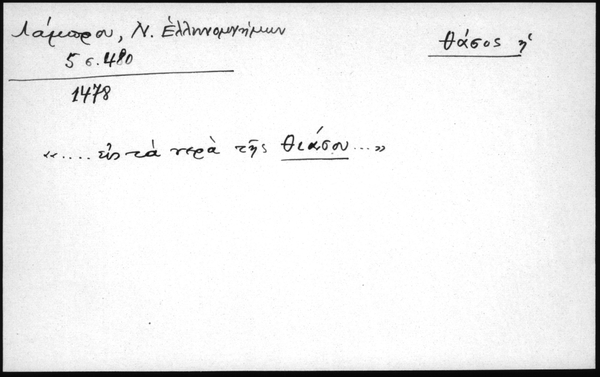 Λάμπρου, Ν. Ἑλληνομνήμων
5 σ. 480
1478
Θάσος ἡ
«.... εἰς τὰ νερὰ τῆς Θιάσου...»